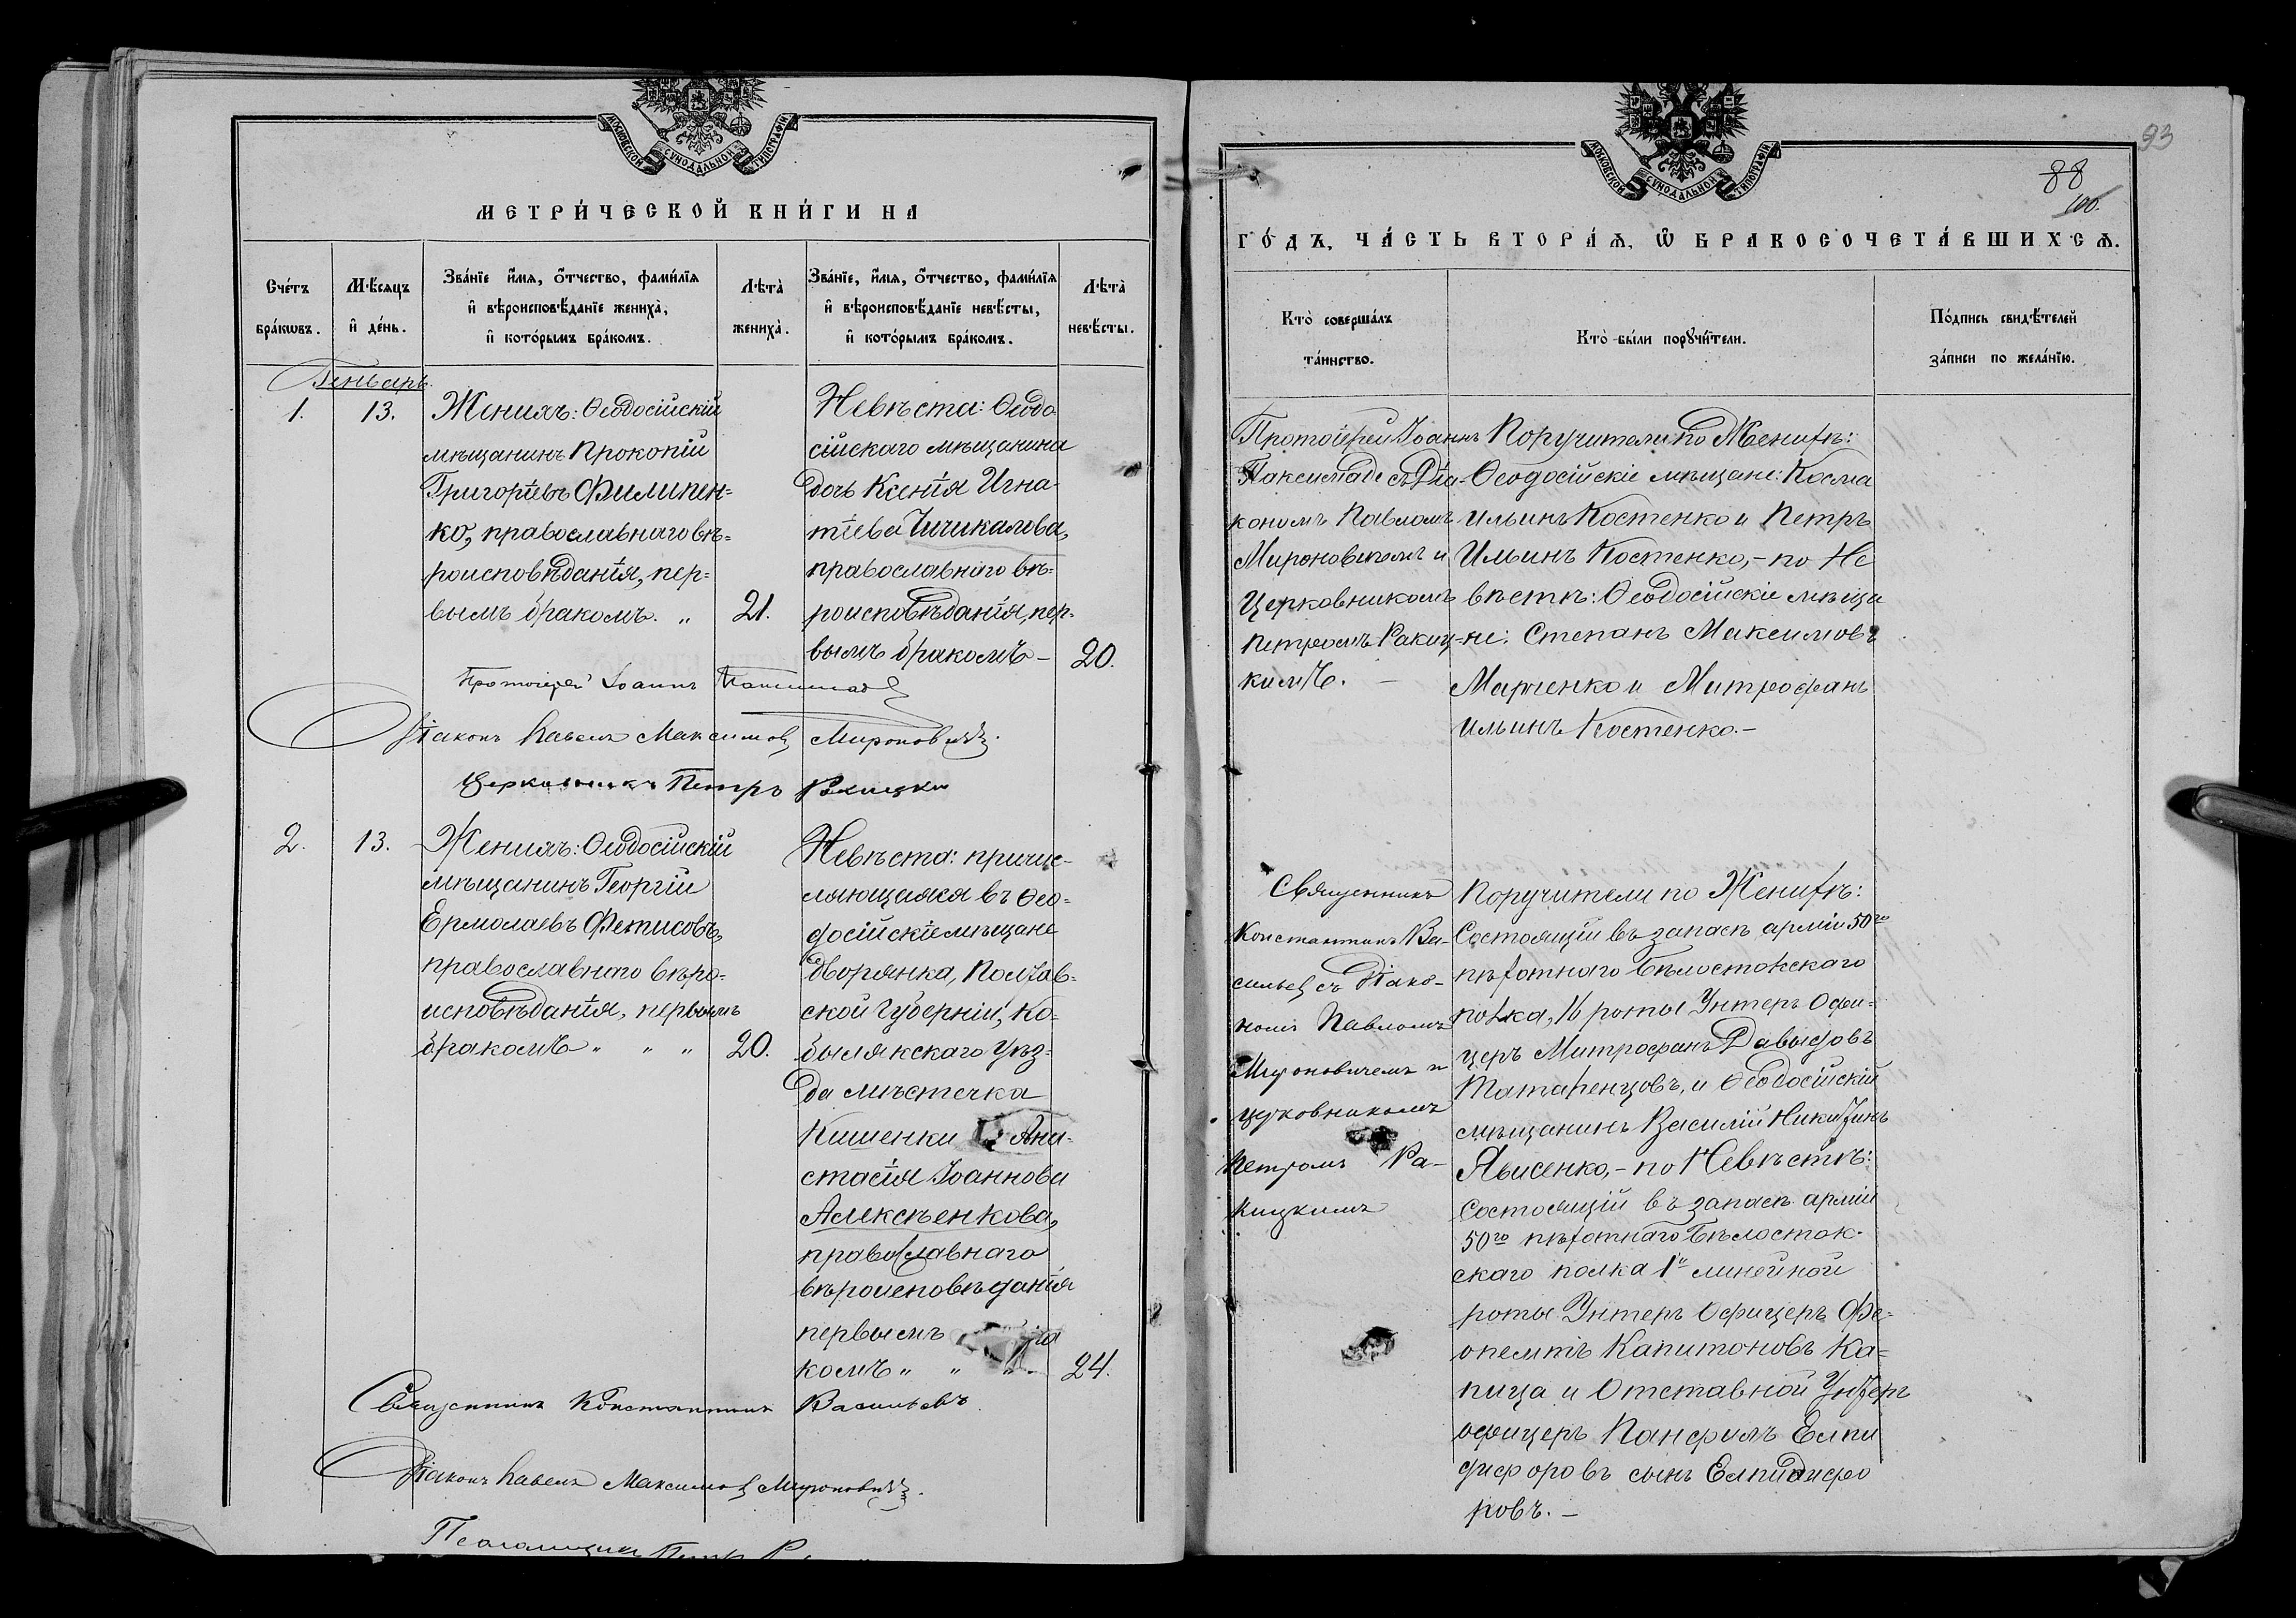 МОСКОВСКОЙ СѴНОДАЛЬНОЙ ТИПОГРАФІИ
МЕТРИ́ЧЕСКОЙ КНИ́ГИ НА
Сче́тъ бра́кѡвъ.
Мѣ́сяцъ и҆ де́нь.
Зва́нїе и҆́мя, ѻ҆́тчество, фами́лїя
и҆ вѣроисповѣ́данїе жениха̀,
и҆ кото́рымъ бра́комъ.
Лѣта̀ жениха̀.
Зва́нїе, и҆́мя, ѻ҆́тчество, фами́лїя
и҆ вѣроисповѣ́данїе невѣ́сты,
и҆ кото́рымъ бра́комъ.
Лѣта̀ невѣ́сты.
Генварь
1. 13.
Женихъ: Ѳеодосійскій
мѣщанинъ Прокопій
Григоріевъ Филипен=
ко, православнаго вѣ=
роисповѣданія, пер=
вымъ бракомъ. „ 21.
Невѣста: Ѳеодо
сійскаго мѣщанина
дочь Ксенія Игна-
тіева Чичикалова,
православнаго вѣ-
роисповѣданія, пер-
вымъ бракомъ – 20.
Протоіерей Іоаннъ
Діаконъ Павелъ Максимов Мироновичъ.
Церковникъ Петръ Ракицкій
2. 13.
Женихъ: Ѳеодосійскій
мѣщанинъ Георгій
Ермолаевъ Фетисовъ,
православнаго вѣро-
исповѣданія, первымъ
бракомъ „ „ „ 20.
Невѣста: причис-
ляющаяся въ Ѳео=
досійскіе мѣщане
дворянка, Полтав-
ской Губерніи, Ко-
былякскаго Уѣз-
да мѣстечка
Кишенки Ана-
стасія Іоаннова
Алексѣенкова,
православнаго
вѣроисповѣданія
первымъ бра
комъ „ „ „ 24.
Священникъ Константинъ Васильевъ
Діаконъ Павелъ Максимов Мироновичъ.
Псаломщикъ Петръ
93
88
100.
МОСКОВСКОЙ СѴНОДАЛЬНОЙ ТИПОГРАФІИ
ГО́ДЪ, ЧА́СТЬ ВТОРА́Я, Ѡ҆ БРАКОСОЧЕТА́ВШИХСЯ.
Кто̀ соверша́лъ та́инство.
Кто̀ бы́ли порꙋчи́тели.
По́дпись свидѣ́телей за́писи по жела́нїю.
Протоіерей Іоаннъ
съ Діа-
кономъ Павломъ
Мироновичемъ и
Церковникомъ
Петромъ Ракиц-
кимъ. –
Поручители по Женихѣ:
Ѳеодосійскіе мѣщане: Косма
Ильинъ Костенко и Петръ
Ильинъ Костенко, – по Не
вѣстѣ: Ѳеодосійскіе мѣща
не: Степанъ Максимовъ
Марченко и Митрофанъ
Ильинъ Костенко. –
Священникъ
Константинъ Ва-
сильев съ Діако-
номъ Павломъ
Мироновичемъ и
церковникомъ
Петромъ Ра-
кицкимъ
Поручители по Женихѣ:
Состоящій въ запасѣ арміи 50го
пѣхотнаго Бѣлостокскаго
полка, 16 роты Унтеръ Офи-
церъ Митрофанъ Давыдовъ
Татаренцовъ, и Ѳеодосійскій
мѣщанинъ Василій Никитинъ
Лысенко, – по Невѣстѣ:
Состоящій въ запасѣ арміи
50го пѣхотнаго Бѣлосток-
скаго полка 1й линейной
роты Унтеръ Офицеръ Фе-
опемтъ Капитоновъ Ка-
пица и Отставной Унтеръ
офицеръ Панфилъ Елпи
дифоровъ сынъ Елпидифо
ровъ. –